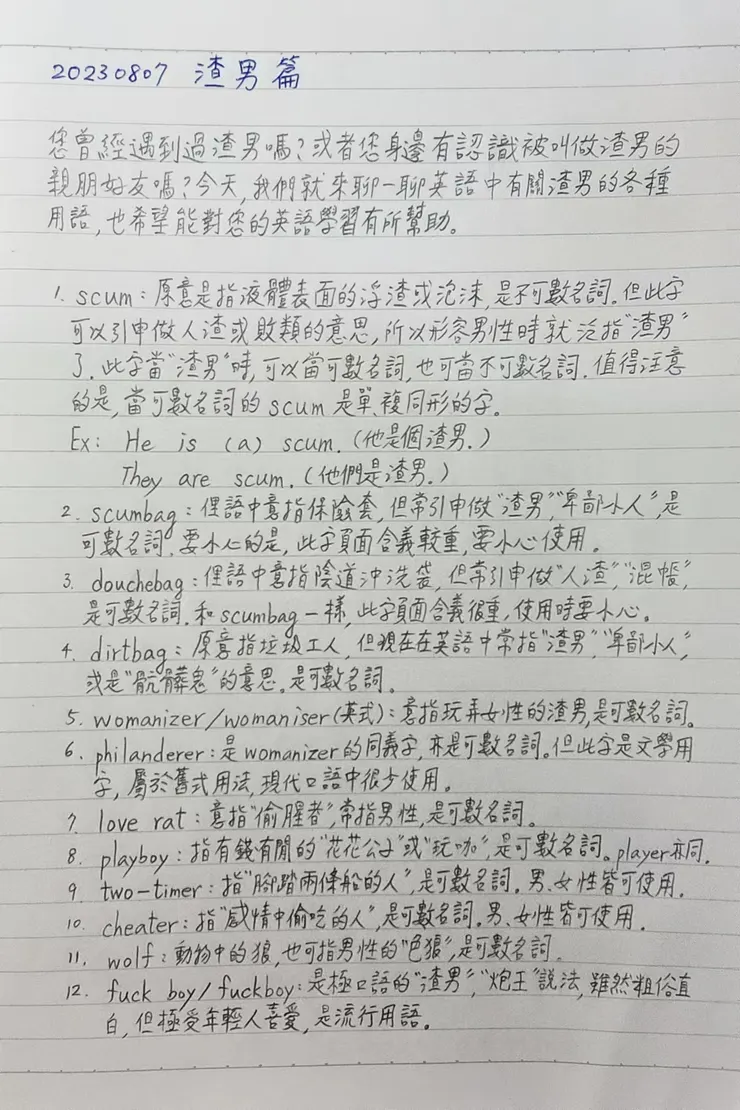 20230807 渣男篇
您曾經遇到過渣男嗎?或者您身邊有認識被叫做渣男的
親朋好友嗎?今天,我們就來聊一聊英語中有關渣男的各種
用語,也希望能對您的英語學習有所幫助。
1. scum:原意是指液體表面的浮渣或泡沫,是不可數名詞.但此字
可以引申做人渣或敗類的意思,所以形容男性時就泛指"渣男"
了.此字當"渣男"時,可以當可數名詞,也可當不可數名詞.值得注意
的是,當可數名詞的 scum 是單、複同形的字。
Ex: He is (a) scum.(他是個渣男.)
They are scum.(他們是渣男.)
2. scumbag:俚語中意指保險套,但常引申做"渣男","卑鄙小人",是
可數名詞.要小心的是,此字負面含義較重,要小心使用。
3. douchebag:俚語中意指陰道沖洗袋,但常引申做"人渣","混帳",
是可數名詞.和 scumbag 一樣,此字負面含義很重,使用時要小心。
4. dirtbag:原意指垃圾工人,但現在在英語中常指"渣男","卑鄙小人",
或是"骯髒鬼"的意思。是可數名詞。
5. womanizer/womaniser(英式):意指玩弄女性的渣男,是可數名詞。
6. philanderer:是womanizer的同義字,亦是可數名詞。但此字是文學用
字,屬於舊式用法,現代口語中很少使用。
7. love rat:意指"偷腥者",常指男性,是可數名詞。
8. playboy:指有錢有閒的"花花公子"或"玩咖",是可數名詞。player亦同.
9. two-timer:指"腳踏兩條船的人",是可數名詞.男、女性皆可使用.
10. cheater:指"感情中偷吃的人",是可數名詞。男、女性皆可使用.
11. wolf:動物中的狼,也可指男性的"色狼",是可數名詞.
12. fuck boy/fuckboy:是極口語的"渣男","炮王"說法,雖然粗俗直
白,但極受年輕人喜愛,是流行用語。